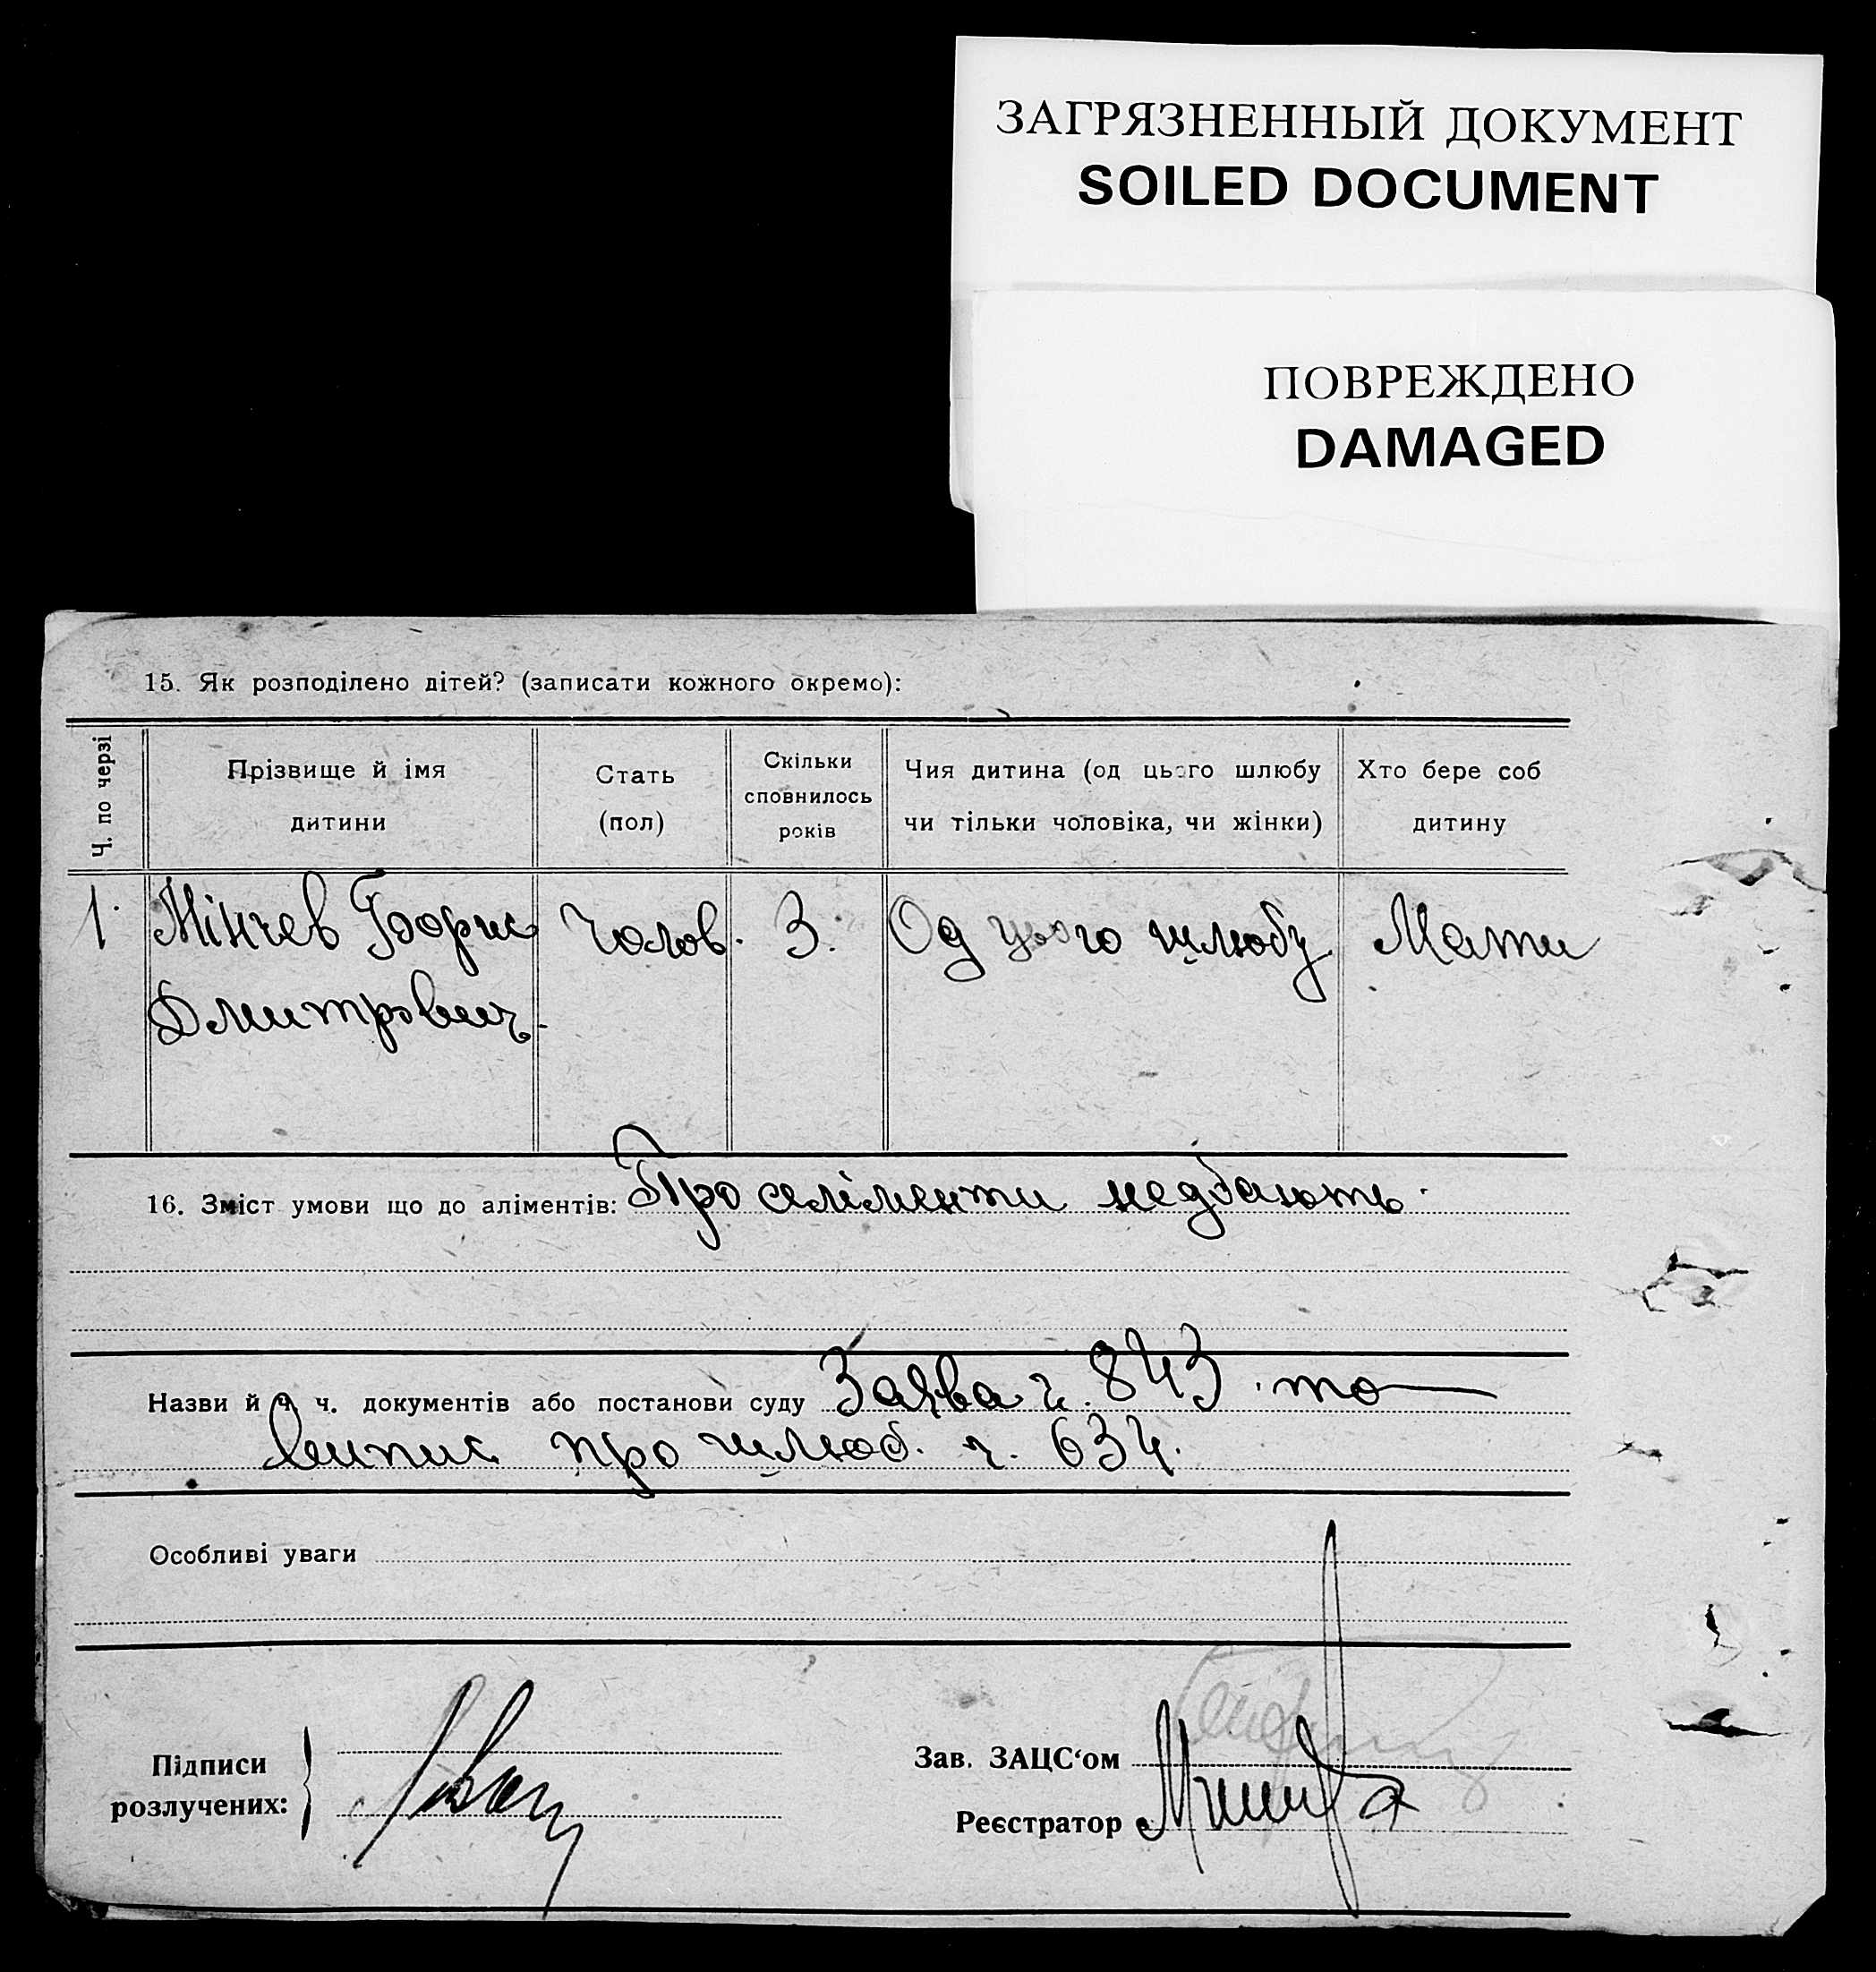 ЗАГРЯЗНЕННЫЙ ДОКУМЕНТ
SOILED DOCUMENT
ПОВРЕЖДЕНО
DAMAGED
15. Як розподілено дітей? (записати кожного окремо):
Ч. по черзі
Прізвище й імя
дитини
Стать
(пол)
Скільки
сповнилось
років
Чия дитина (од цього шлюбу
чи тільки чоловіка, чи жінки)
Хто бере соб
дитину
1. Мінчев Борис Чолов. 3. Од цього шлюбу Мати
Дмитрович.
16. Зміст умови що до аліментів: Про аліменти недбають.
Назви й ч. ч. документів або постанови суду Заява ч. 843 та
випис про шлюб. ч. 634.
Особливі уваги
Підписи
розлучених:
Зав. ЗАЦС‘ом
Реєстратор